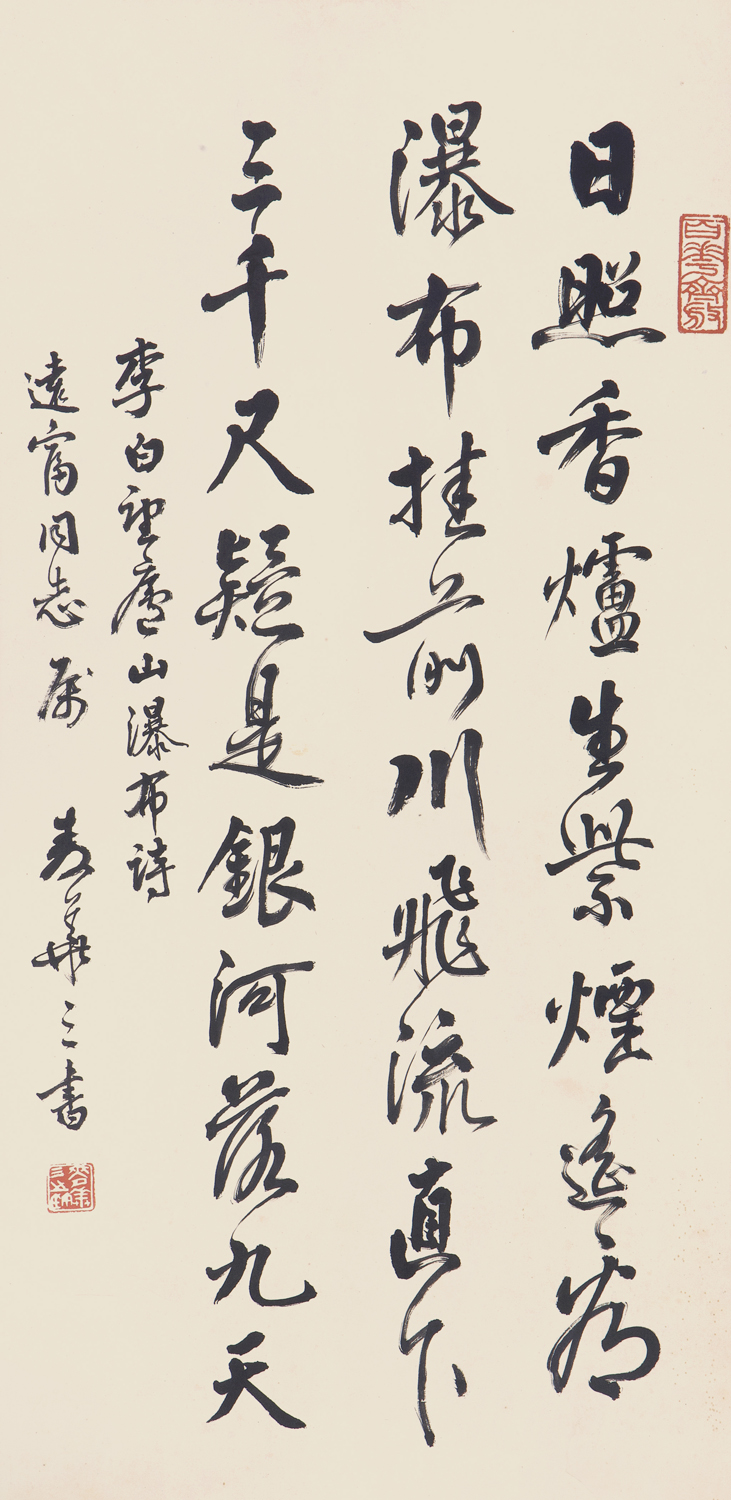 百花齊放
日照香爐生紫煙遙看
瀑布挂前川飛流直下
三千尺疑是銀河落九天
李白望廬山瀑布詩
遠富同志属 麦華三書